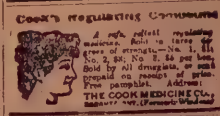 Cook's Regulating Compound
A safe, reliable regulating
medicine. Sold in three de-
grees of strength—No. 1, $1;
No. 2, $3; No. 3, $5 per box.
Sold by all druggists, or sent
prepaid on receipt of price.
Free pamphlet. Address:
THE COOK MEDICINE CO.,
TORONTO, ONT. (Formerly Windsor.)